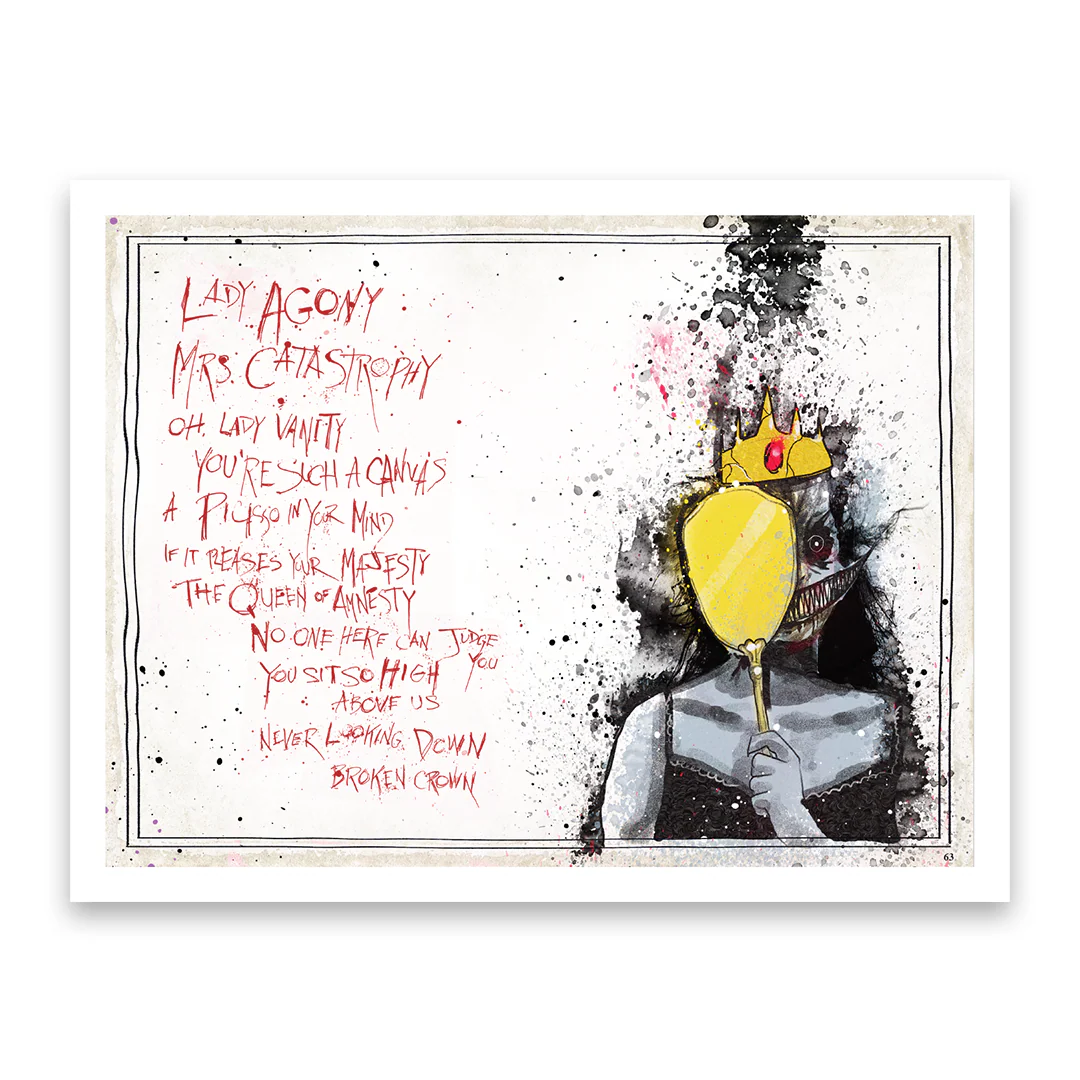 LADY AGONY
MRS. CATASTROPHY
OH, LADY VANITY
YOU'RE SUCH A CANVAS
A PICASSO IN YOUR MIND
IF IT PLEASES YOUR MAJESTY
THE QUEEN OF AMNESTY
NO ONE HERE CAN JUDGE
YOU
YOU SIT SO HIGH
ABOVE US
NEVER LOOKING DOWN
BROKEN CROWN
63